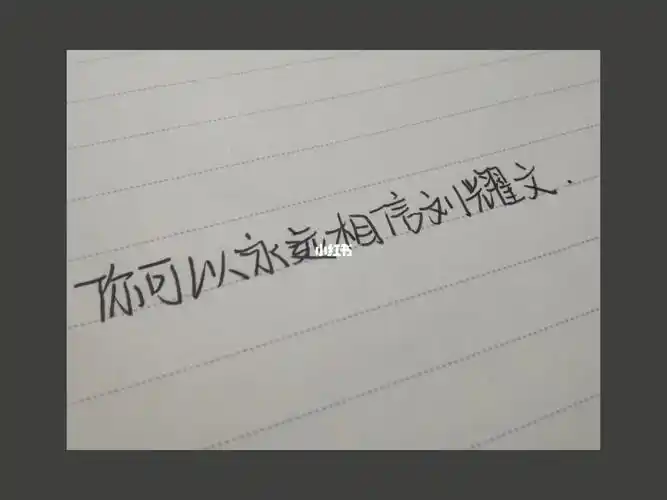 你可以永远相信刘耀文.
小红书